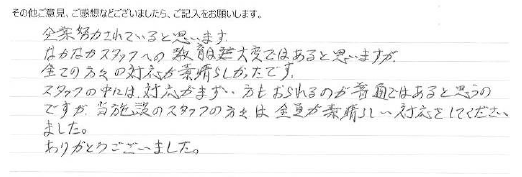 その他ご意見、ご感想などございましたら、ご記入をお願いします。
企業努力されていると思います。
なかなかスタッフへの教育は大変ではあると思いますが、
全ての方々の対応が素晴らしかったです。
スタッフの中には、対応がまずい方もおられるのが普通ではあると思うの
ですが、当施設のスタッフの方々は全員が素晴しい対応をしてください
ました。
ありがとうございました。